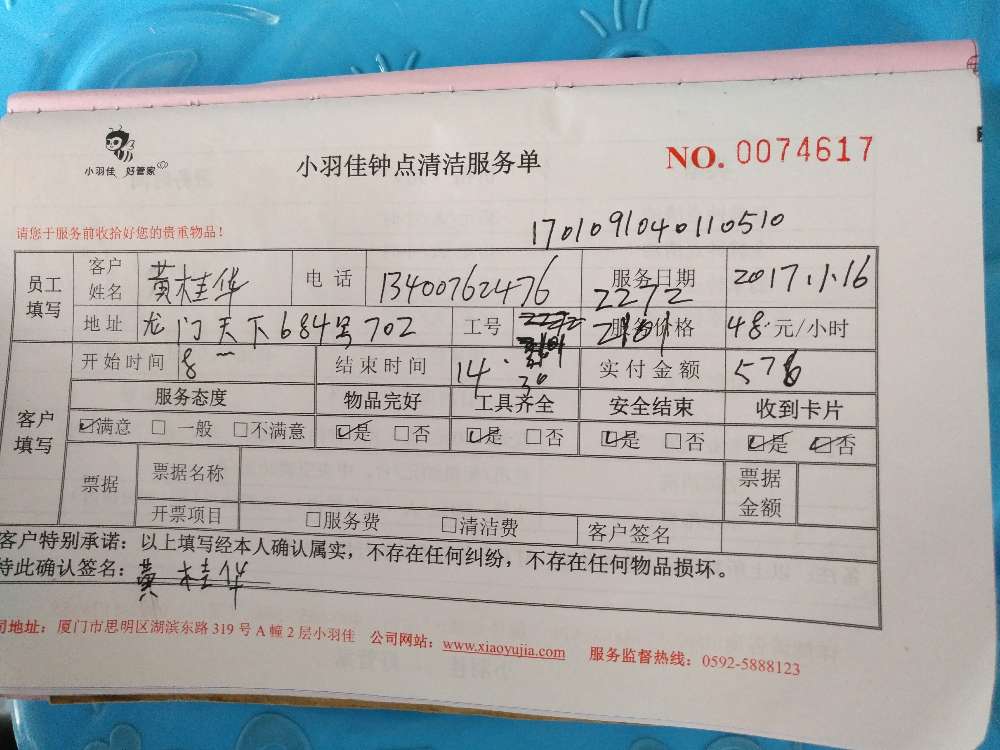 小羽佳 好管家
小羽佳钟点清洁服务单
NO. 0074617
请您于服务前收拾好您的贵重物品!
1701091040110510
员工填写 客户姓名 黄桂华 电话 13400762476 服务日期 2017.1.16
地址 龙门天下684号702 工号 2272 2101 服务价格 48 元/小时
客户填写 开始时间 8 结束时间 14.30 实付金额 576
服务态度 物品完好 工具齐全 安全结束 收到卡片
☑满意 □一般 □不满意 ☑是 □否 ☑是 □否 ☑是 □否 ☑是 ☑否
票据 票据名称 票据金额
开票项目 □服务费 □清洁费 客户签名
客户特别承诺:以上填写经本人确认属实,不存在任何纠纷,不存在任何物品损坏。
特此确认签名:黄桂华
司地址:厦门市思明区湖滨东路 319 号 A 幢 2 层小羽佳 公司网站:www.xiaoyujia.com 服务监督热线:0592-5888123